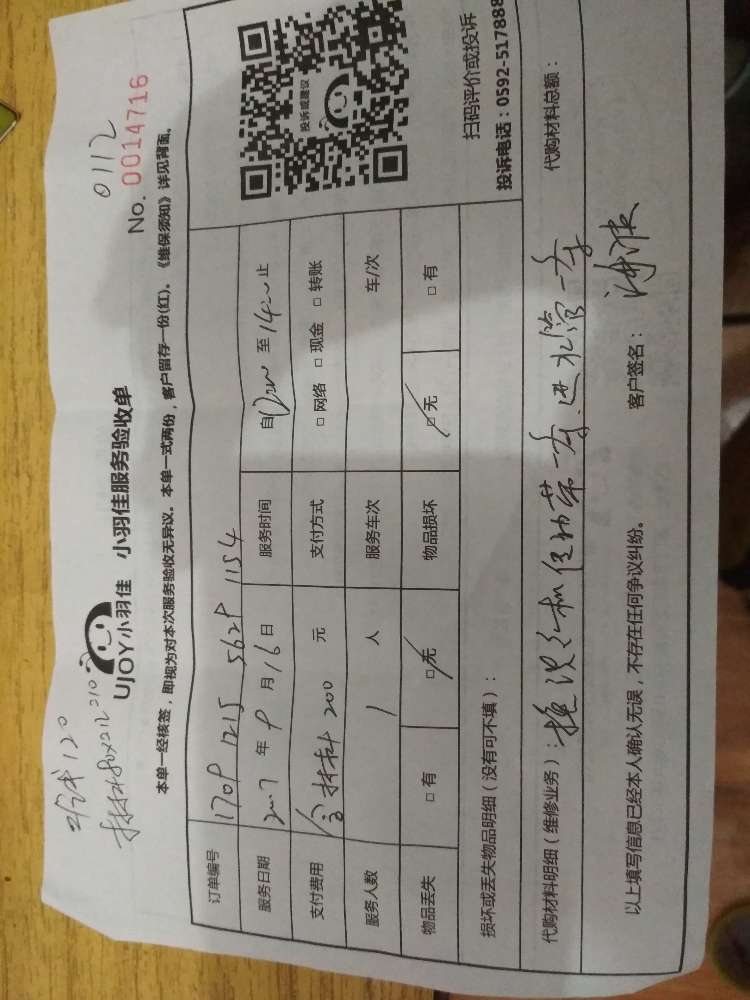 0112
No. 0014716
UJOY小羽佳 小羽佳服务验收单
本单一经核签，即视为对本次服务验收无异议。本单一式两份，客户留存一份(红)。《维保须知》详见背面。
订单编号 1709 1215 5629 1154
服务日期 年 9 月 16 日 服务时间 自 至 止
支付费用 含材料 200 元 支付方式 □ 网络 □ 现金 □ 转账
服务人数 1 人 服务车次 车/次
物品丢失 □ 有 □ 无 物品损坏 □ 无 □ 有
投诉或建议
扫码评价或投诉
投诉电话：0592-517888
损坏或丢失物品明细（没有可不填）：
代购材料明细（维修业务）：换洗衣机 一条.进水管一条 代购材料总额：
以上填写信息已经本人确认无误，不存在任何争议纠纷。 客户签名：